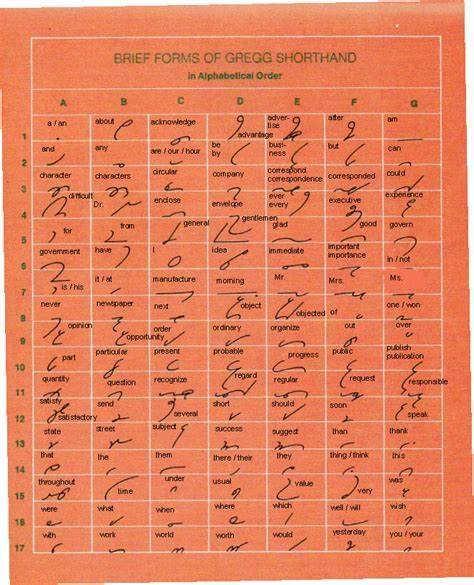 BRIEF FORMS OF GREGG SHORTHAND
in Alphabetical Order
A B C D E F G
1 a / an about acknowledge advantage adver-tise after am
2 and any are / our / hour be by busi-ness but can
3 character characters circular company correspond correspondence corresponded could
4 difficult Dr. enclose envelope ever every executive experience
5 for from general gentlemen glad good govern
6 government have I idea immediate important importance in / not
7 is / his it / at manufacture morning Mr. Mrs. Ms.
8 never newspaper next object objected of one / won
9 opinion opportunity order ordinary organize out over
10 part particular present probable progress public publish publication
11 quantity question recognize regard regular request responsible
12 satisfy satisfactory send several short should soon speak
13 state street subject success suggest than thank
14 that the them there / their they thing / think this
15 throughout time under usual value very was
16 were what when where which well / will wish
17 with work world worth would yesterday you / your